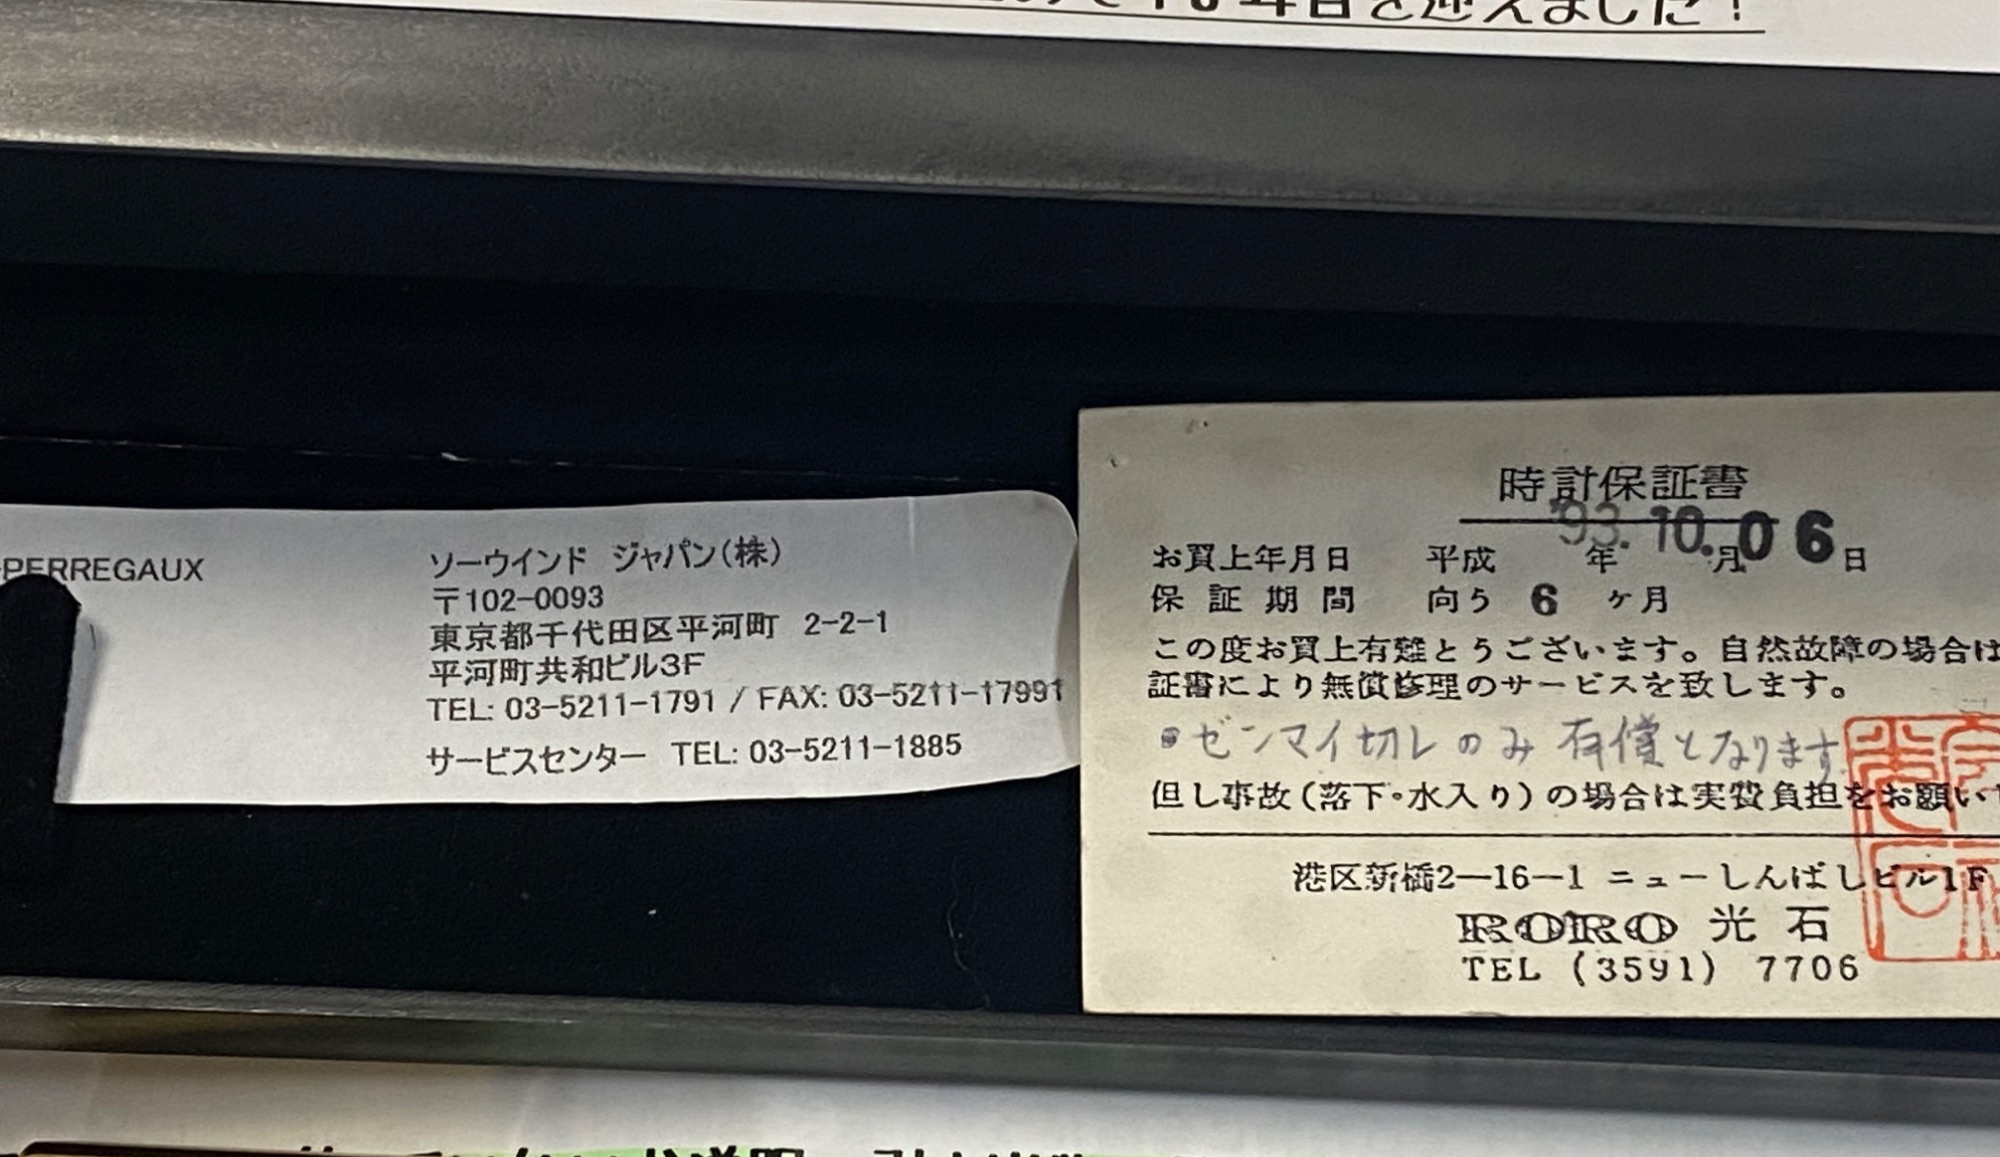 年目を迎えました!
PERREGAUX
ソーウインド ジャパン(株)
〒102-0093
東京都千代田区平河町 2-2-1
平河町共和ビル3F
TEL: 03-5211-1791 / FAX: 03-5211-17991
サービスセンター TEL: 03-5211-1885
時計保証書
'93.10.06
お買上年月日 平成 年 月 日
保証期間 向う 6 ヶ月
この度お買上有難とうございます。自然故障の場合は
証書により無償修理のサービスを致します。
・ゼンマイ切レのみ有償となります
但し事故(落下・水入り)の場合は実費負担をお願い
港区新橋2―16―1 ニューしんばしビル1F
RORO 光石
TEL (3591) 7706